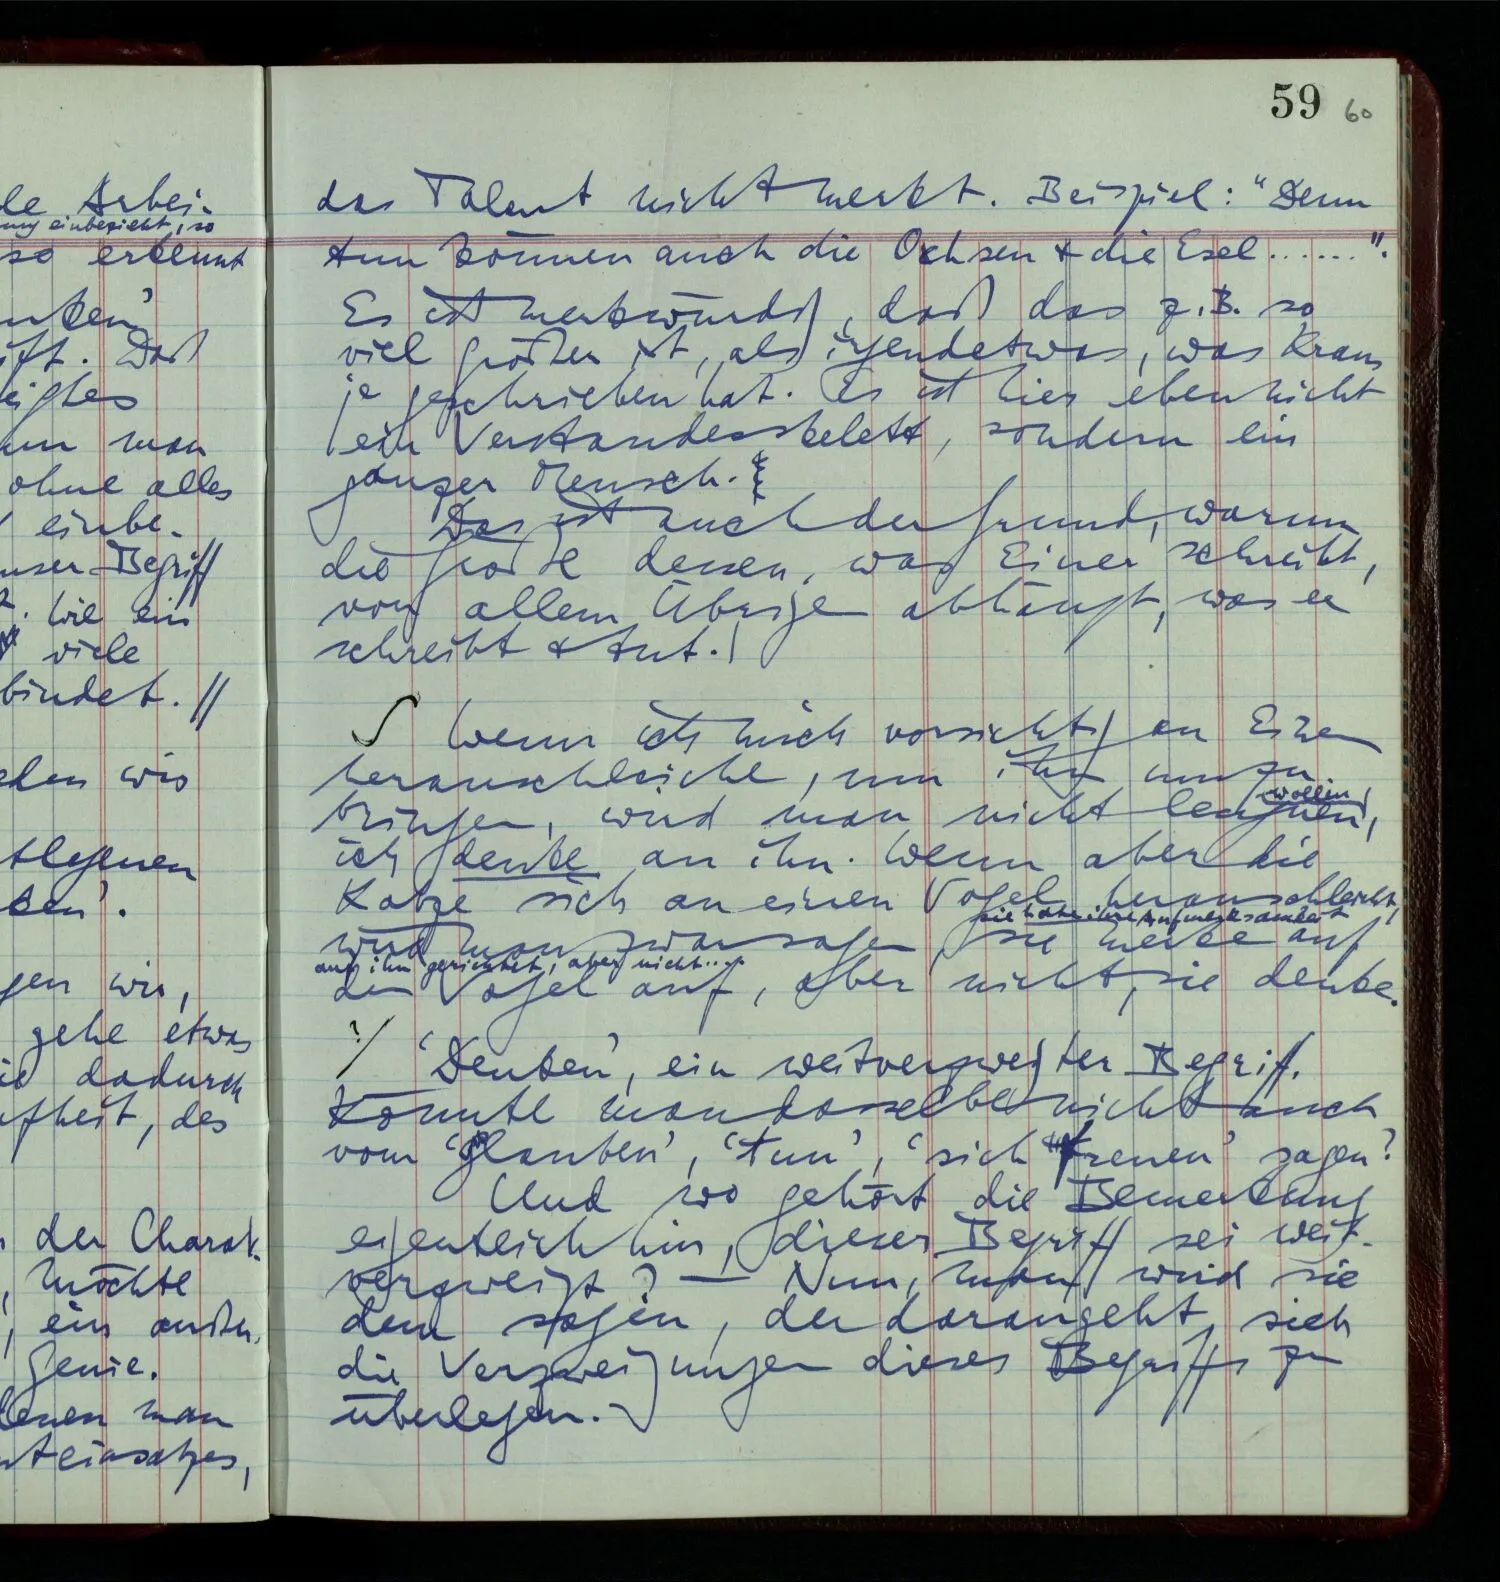 59 60
le Arbei-
ung einbezieht, so
so erkennt
nken'
ift. Daß
eigtes
nn man
ohne alles
einbe-
nser Begriff
. Wie ein
viele
bindet. //
den wir
tlegenen
ken'.
gen wir,
gehe etwas
ie dadurch
fheit, des
der Charak-
, möchte
, ein ander,
Genie.
denen man
nteinsatzes,
das Talent nicht merkt. Beispiel: "Denn
tun können auch die Ochsen & die Esel......".
Es ist merkwürdig, daß das z.B. so
viel größer ist, als irgendetwas, was Kraus
je geschrieben hat. Es ist hier eben nicht
ein Verstandesskelett, sondern ein
ganzer Mensch.
Das ist auch der Grund, warum
die Größe dessen, was Einer schreibt,
von allem Übrigen abhängt, was er
schreibt & tut.|
∫ Wenn ich mich vorsichtig an Einen
heranschleiche, um ihn umzu
wollen,
bringen, wird man nicht leugnen,
ich denke an ihn. Wenn aber die
Katze sich an einen Vogel heranschleicht,
sie habe ihre Aufmerksamkeit
wird man zwar sagen, sie merke auf
auf ihn gerichtet, aber nicht...
den Vogel auf, aber nicht, sie denke.
?/ 'Denken', ein weitverzweigter Begriff.
Könnte man dasselbe nicht auch
vom 'Glauben', 'tun', 'sich freuen' sagen?
Und wo gehört die Bemerkung
eigentlich hin, dieser Begriff sei weit-
verzweigt? — Nun, man wird sie
dem sagen, der darangeht, sich
die Verzweigungen dieses Begriffs zu
überlegen.